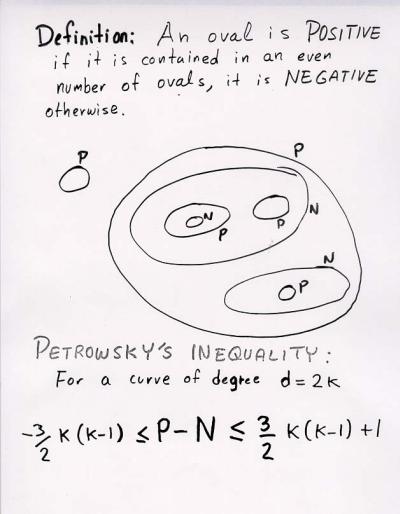 Definition: An oval is POSITIVE
if it is contained in an even
number of ovals, it is NEGATIVE
otherwise.
P
P
N
P
P
N
N
P
PETROWSKY'S INEQUALITY:
For a curve of degree d=2k
-3/2 k(k-1) ≤ P-N ≤ 3/2 k(k-1)+1